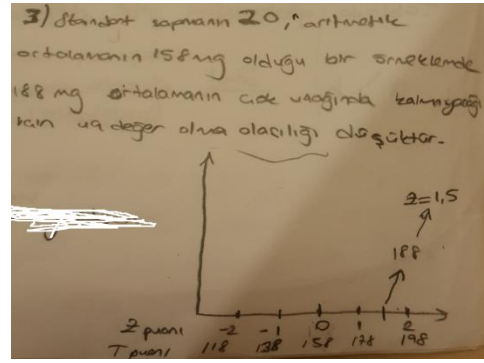 3) Standart sapmanın 20, aritmetik
ortalamanın 158 mg olduğu bir örneklemde
188 mg ortalamanın çok uzağında kalmayacağı
için uç değer olma olasılığı düşüktür.
z=1,5
188
Z puanı -2 -1 0 1 2
T puanı 118 138 158 178 198